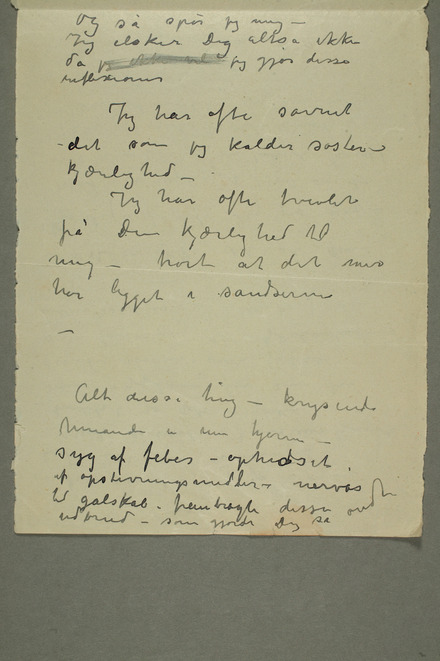 Og så spör jeg mig –
Jeg elsker Dig altså ikke
da jeg gjör disse
reflexioner
Jeg har ofte savnet
det som jeg kalder söster-
kjærlighed –
Jeg har ofte tvivlet
på Din kjærlighed til
mig – trot at det mes
har ligget i sandserne
–
Alt disse ting – krysende
i min hjerne –
syg af feber – ophidset
af opstivningsmidler – nervös
til galskab – frembragte disse
udbrud – som gjorde Dig så